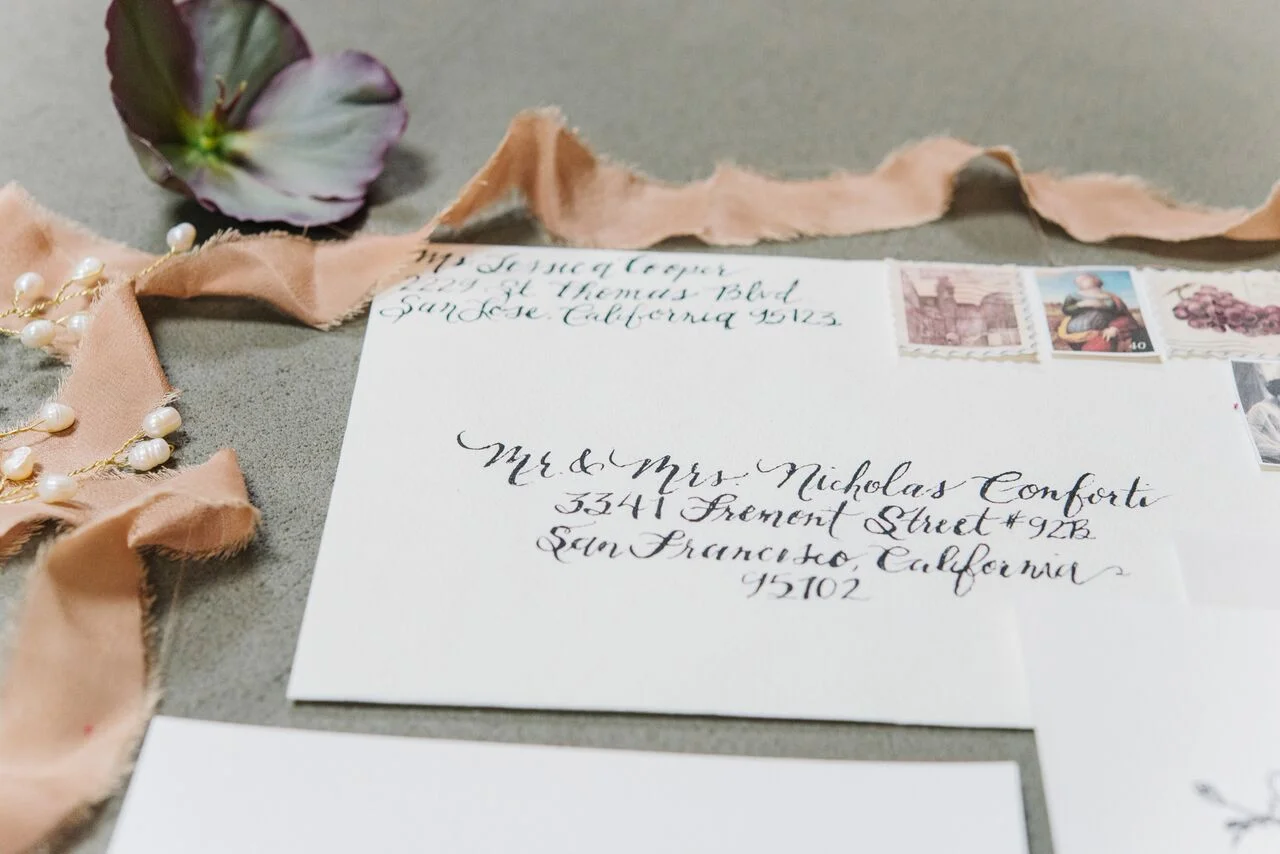 Ms Jessica Cooper
2229 St Thomas Blvd
San Jose, California 95123
40
Mr. & Mrs. Nicholas Conforti
3341 Fremont Street #92B
San Francisco, California
95102